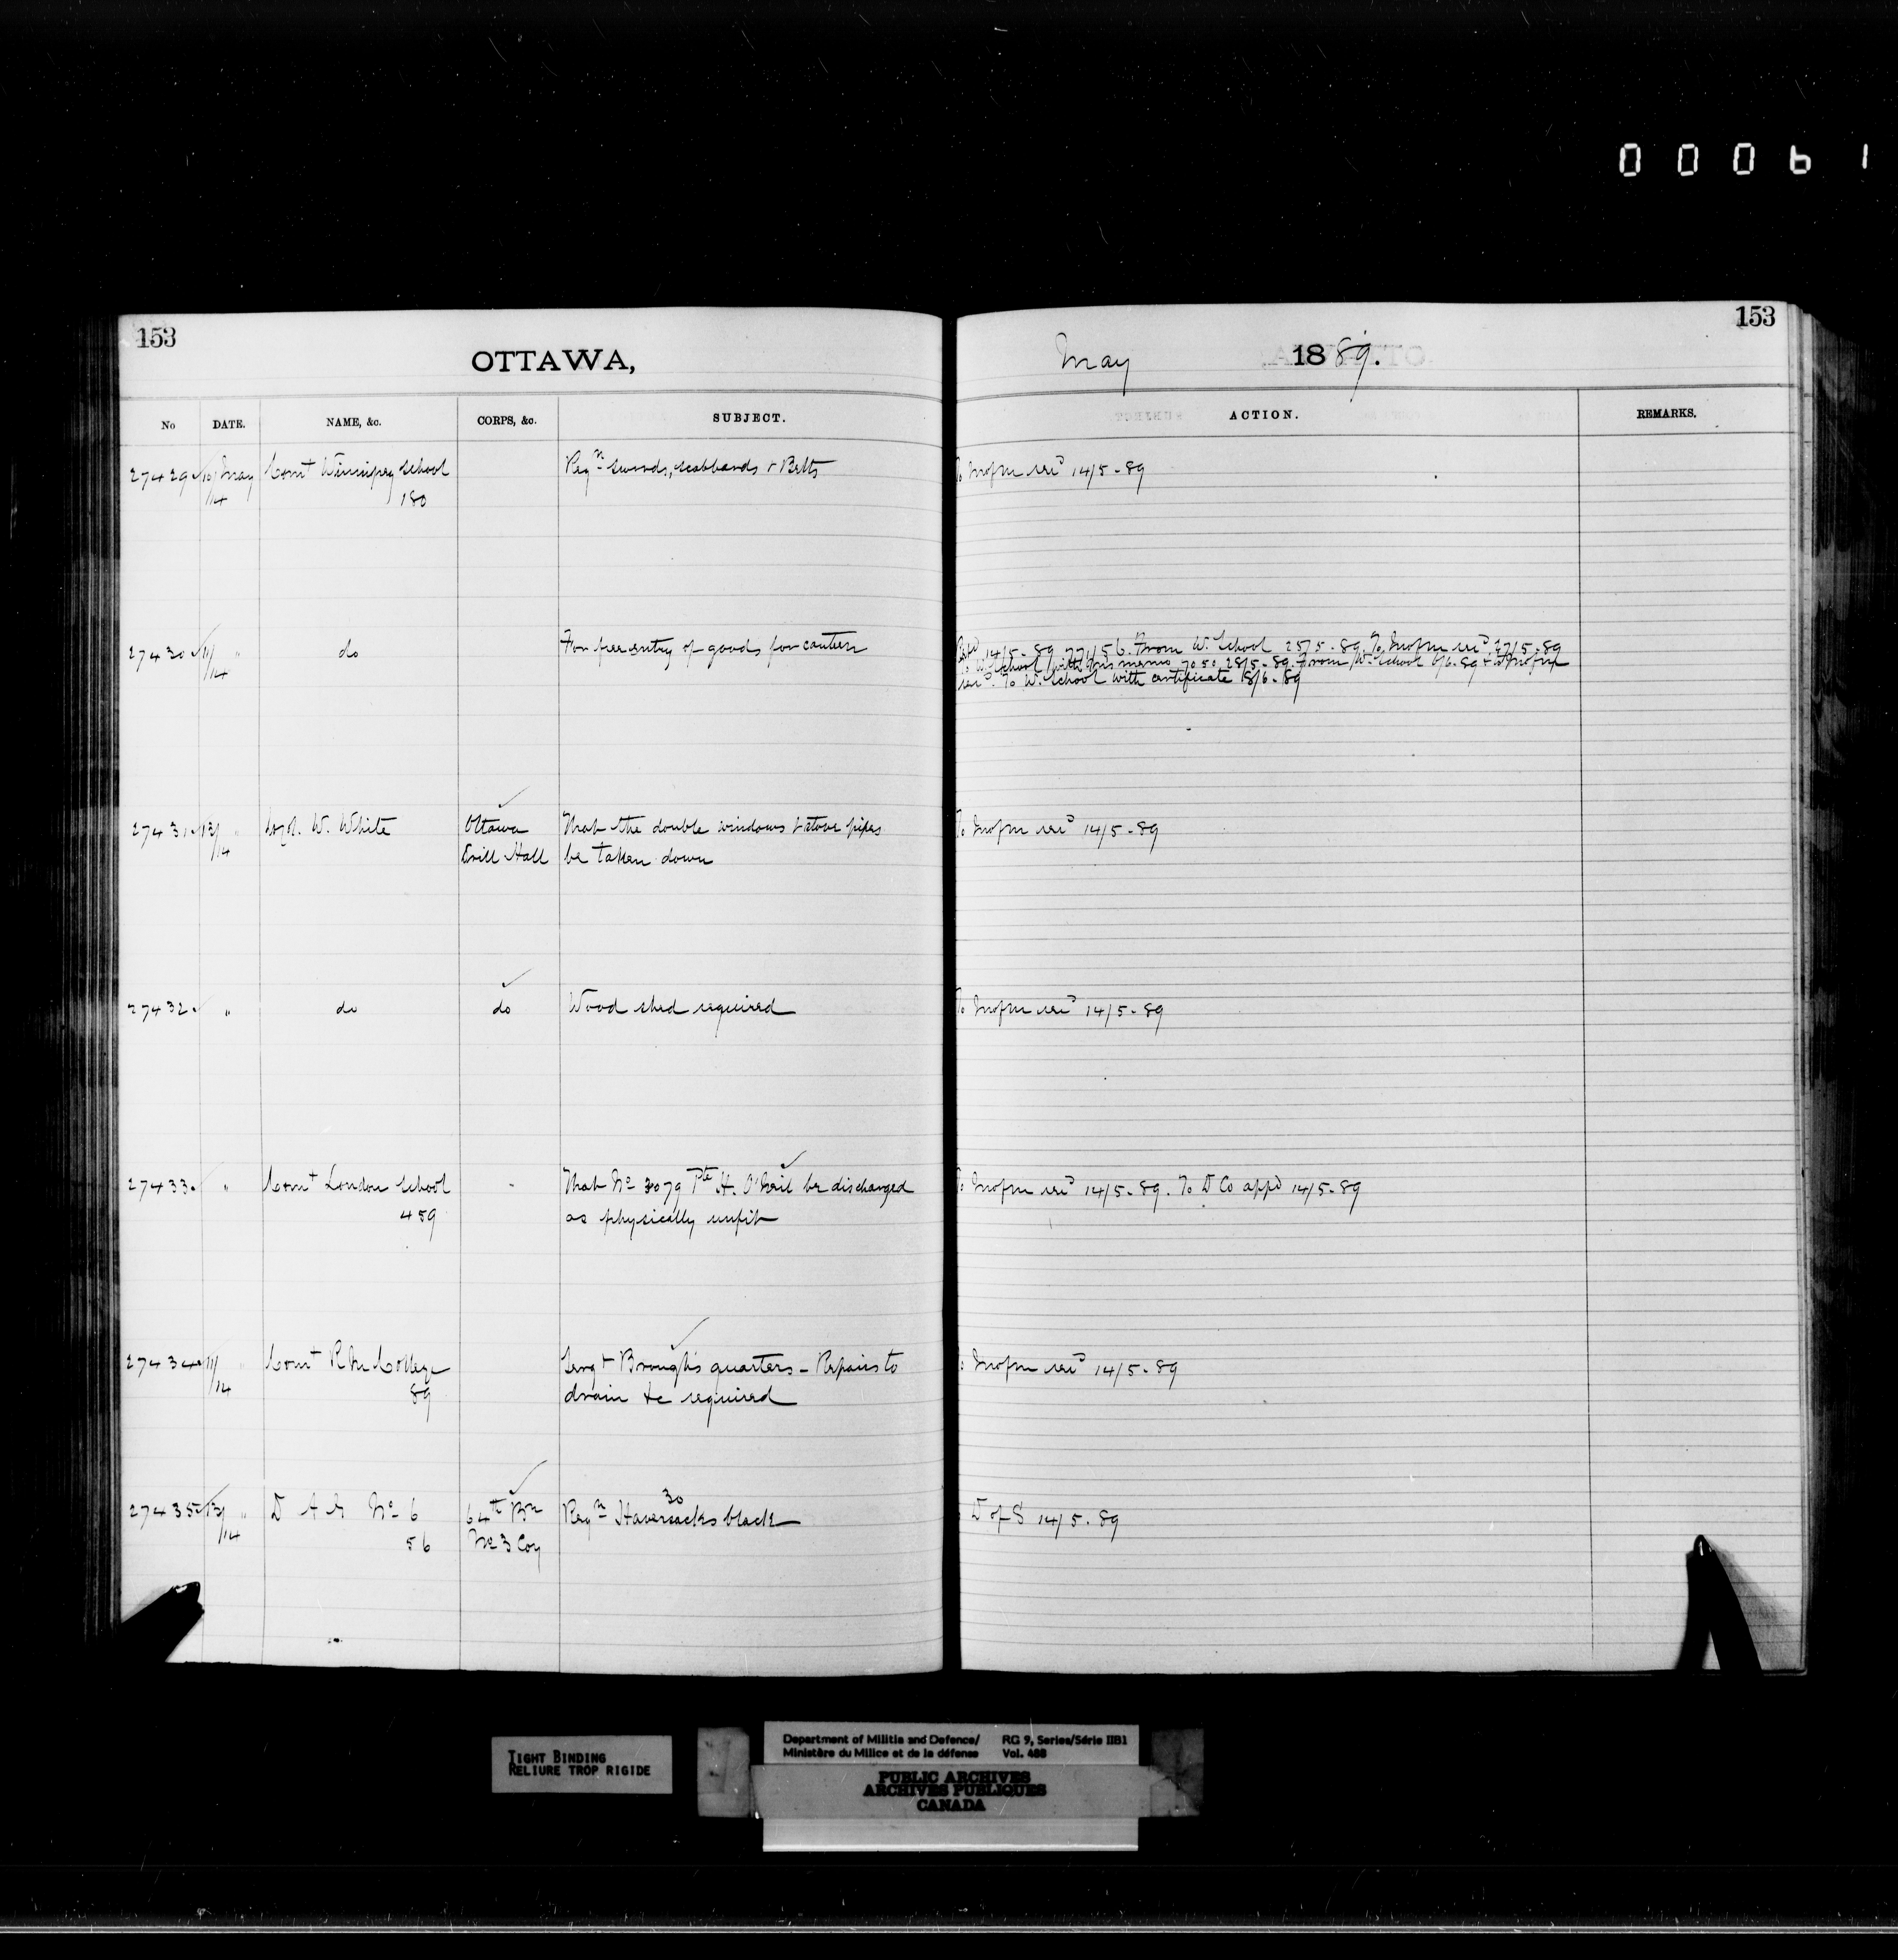 00061
153
OTTAWA,
May 1889.
153
No DATE. NAME, &c. CORPS, &c. SUBJECT. ACTION. REMARKS.
27429 10/14 May Comt Winnipeg School Reqn swords, scabbards & Belts To Mofm 14/5-89
180
27430 11/14 " do For free entry of goods for canteen 14/5-89 77156. From W. School 25/5-89. To Mofm 27/5-89
To W. School with memo 7050 28/5-89. From W. School 6/6-89 & to Mofm
To W. School with certificate 18/6-89
27431 13/14 " W. White Ottawa That the double windows & stove pipes To Mofm 14/5-89
Drill Hall be taken down
27432 " do do Wood shed required To Mofm 14/5-89
27433 " Comt London School That No 3079 Pte H. O'Neil be discharged To Mofm 14/5-89. To D Co appd 14/5-89
459 as physically unfit
27434 11/14 " Comt R M College Sergt Brough's quarters - Repairs to Mofm 14/5-89
89 drain &c required
27435 13/14 " D A G No 6 64th Bn Reqn 30 Haversacks black D of S 14/5-89
56 No 3 Coy
TIGHT BINDING
RELIURE TROP RIGIDE
Department of Militia and Defence/ RG 9, Series/Série IIB1
Ministère du Milice et de la défense Vol. 488
PUBLIC ARCHIVES
ARCHIVES PUBLIQUES
CANADA